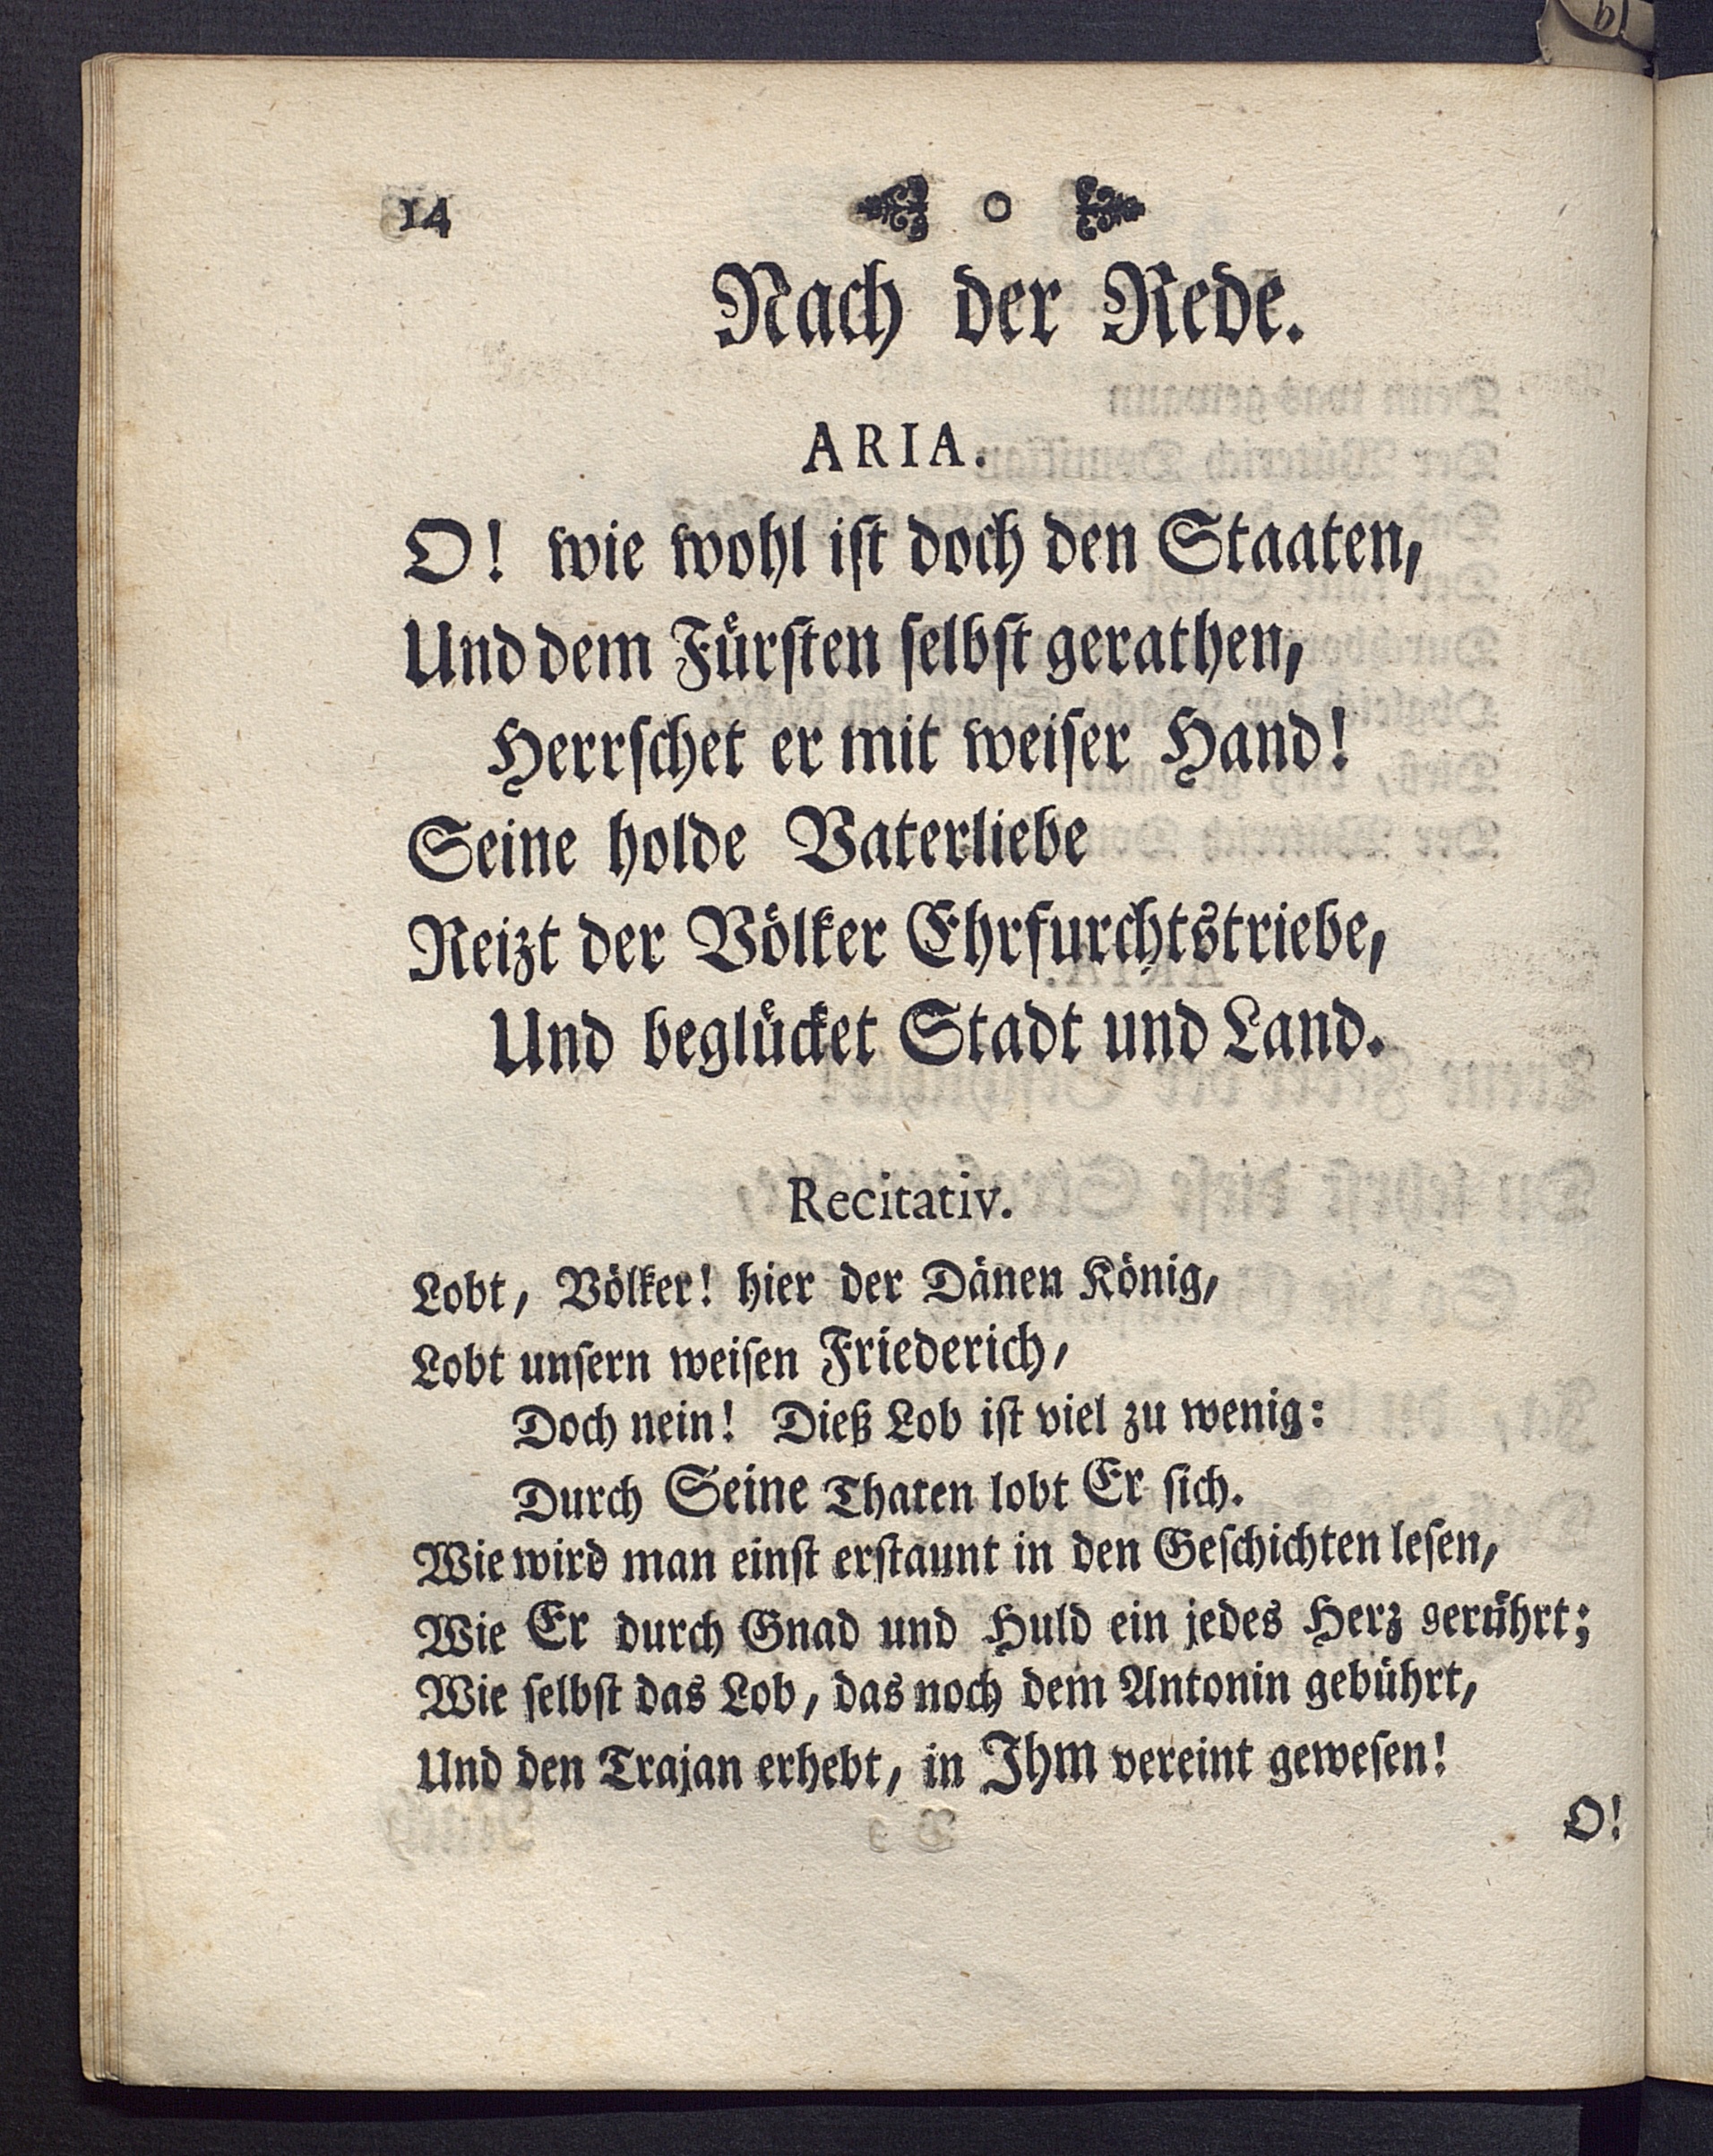 14 o
Nach der Rede.
ARIA.
O! wie wohl ist doch den Staaten,
Und dem Fürsten selbst gerathen,
Herrschet er mit weiser Hand!
Seine holde Vaterliebe
Reizt der Völker Ehrfurchtstriebe,
Und beglücket Stadt und Land.
Recitativ.
Lobt, Völker! hier der Dänen König,
Lobt unsern weisen Friederich,
Doch nein! Dieß Lob ist viel zu wenig:
Durch Seine Thaten lobt Er sich.
Wie wird man einst erstaunt in den Geschichten lesen,
Wie Er durch Gnad und Huld ein jedes Herz gerührt;
Wie selbst das Lob, das noch dem Antonin gebührt,
Und den Trajan erhebt, in Ihm vereint gewesen!
O!